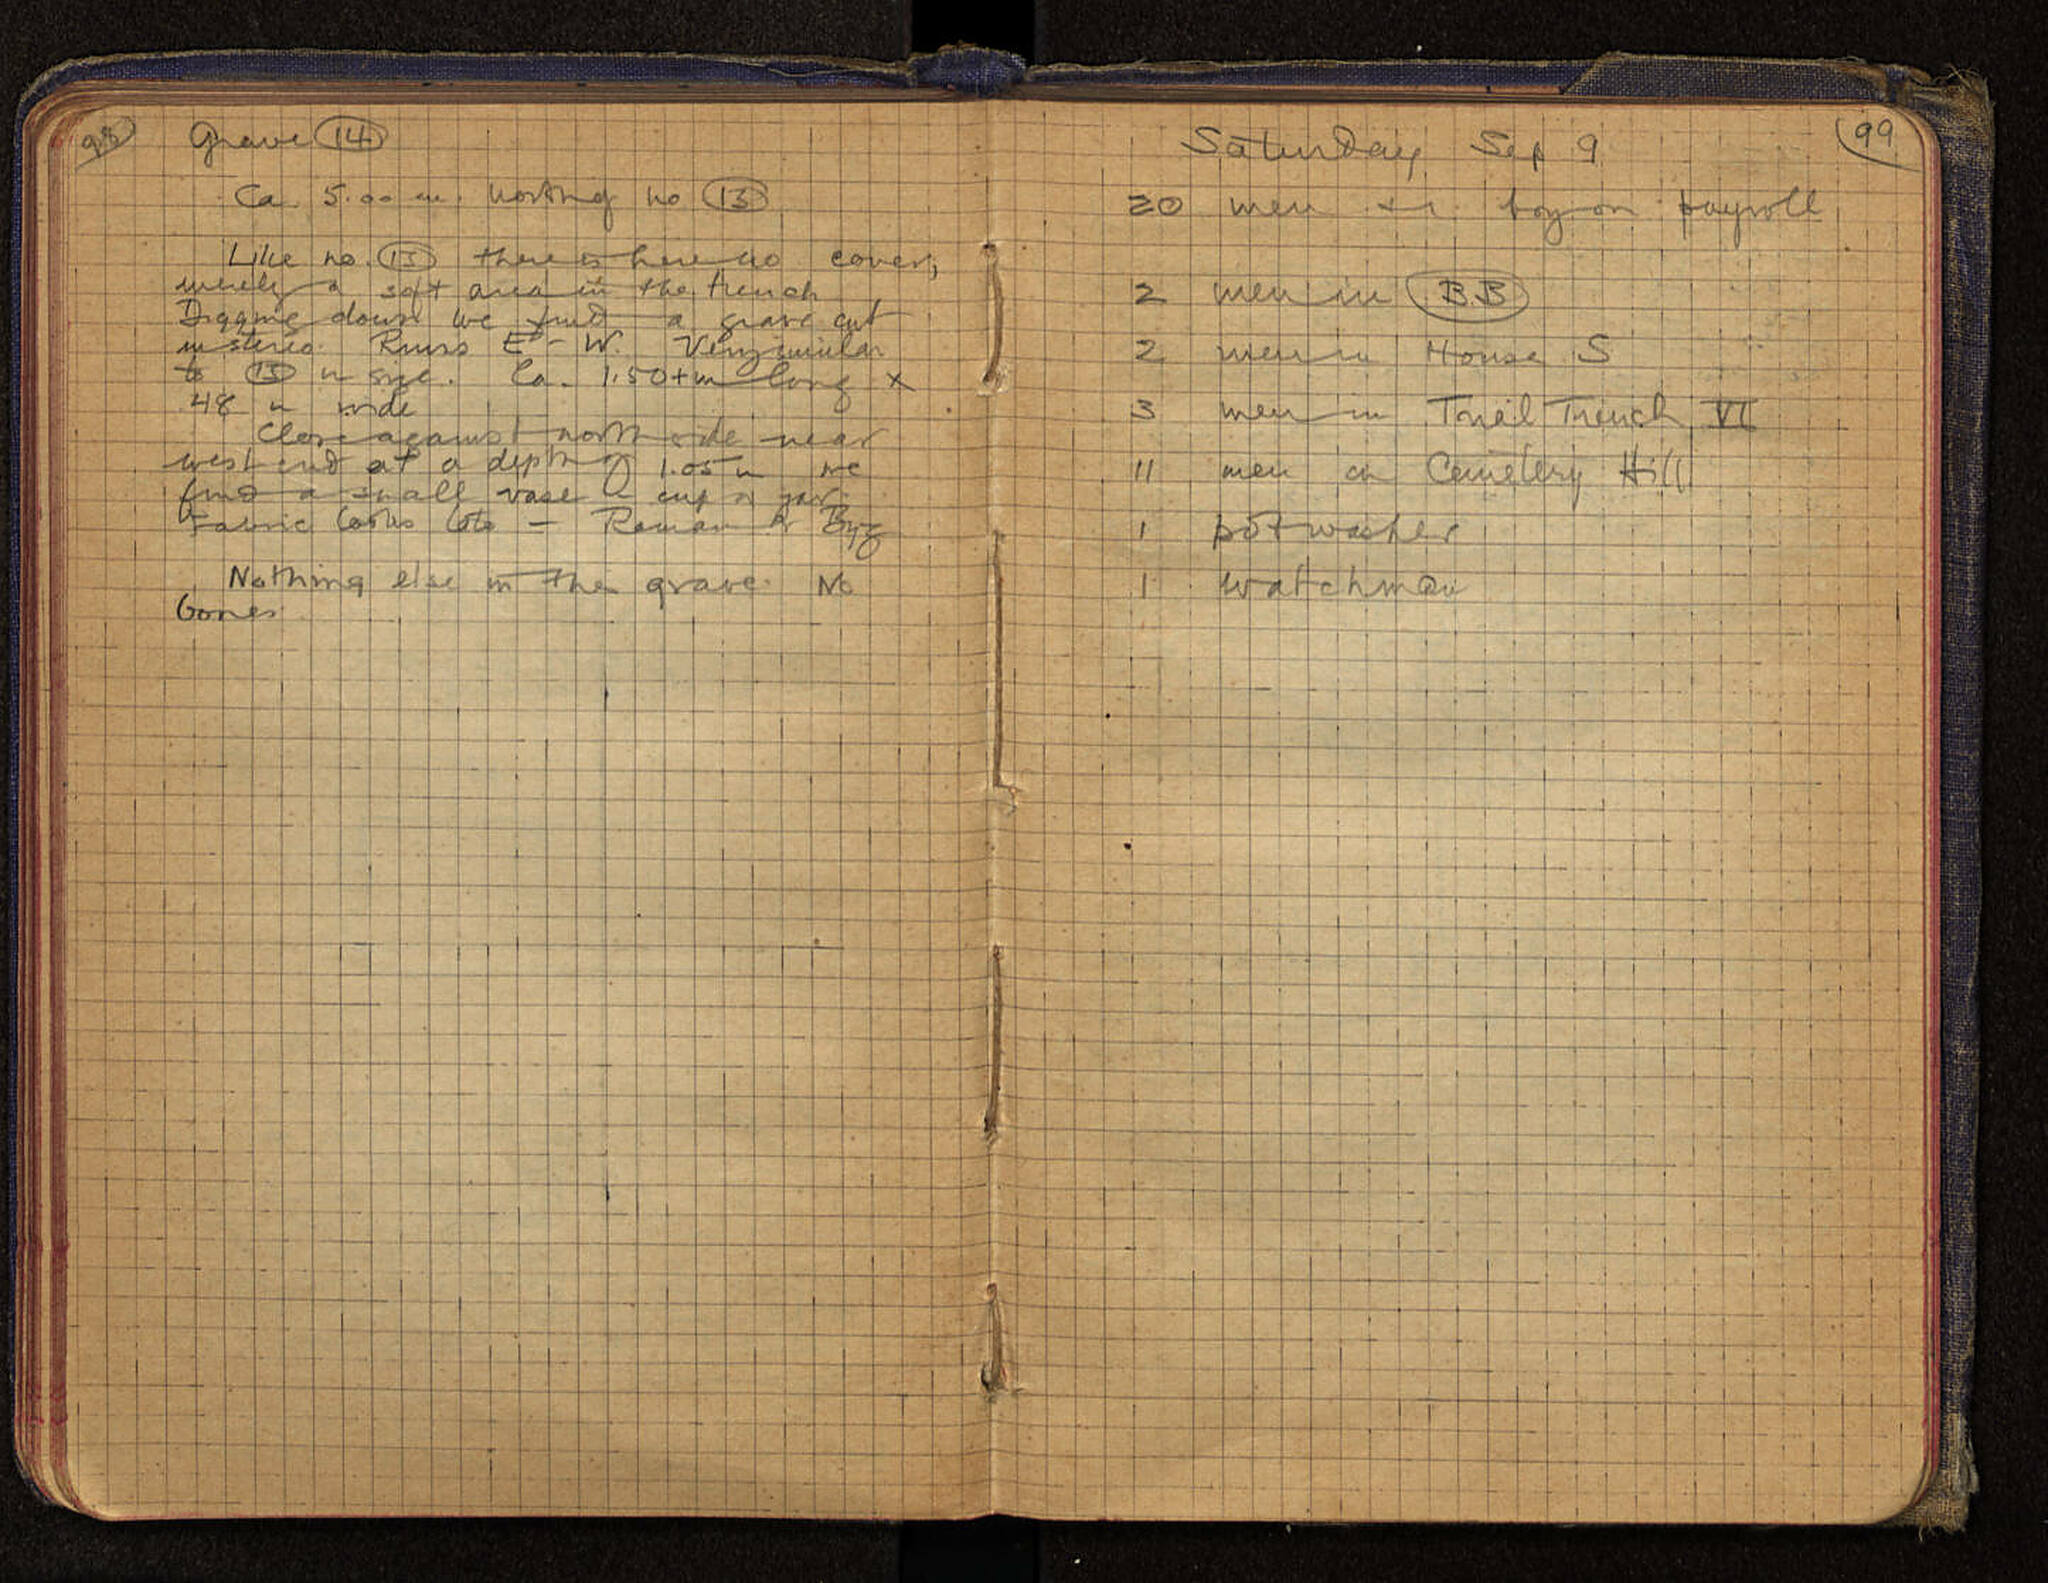 98
Grave 14
Ca. 5.00 m. north of no 13
Like no. 13 there is here no cover,
merely a soft area in the trench
Digging down we find a grave cut
in stereo. Runs E - W. Very similar
to 13 in size. Ca. 1.50+m long x
48 m wide
Close against north side near
west end at a depth of 1.05 m we
find a small vase a cup or jar.
Fabric looks late — Roman or Byz
Nothing else in the grave. No
bones.
99
Saturday Sep 9
20 men + 1 boy on payroll
2 men in B.B
2 men in House S
3 men in Trial Trench VI
11 men on Cemetery Hill
1 potwasher
1 watchman